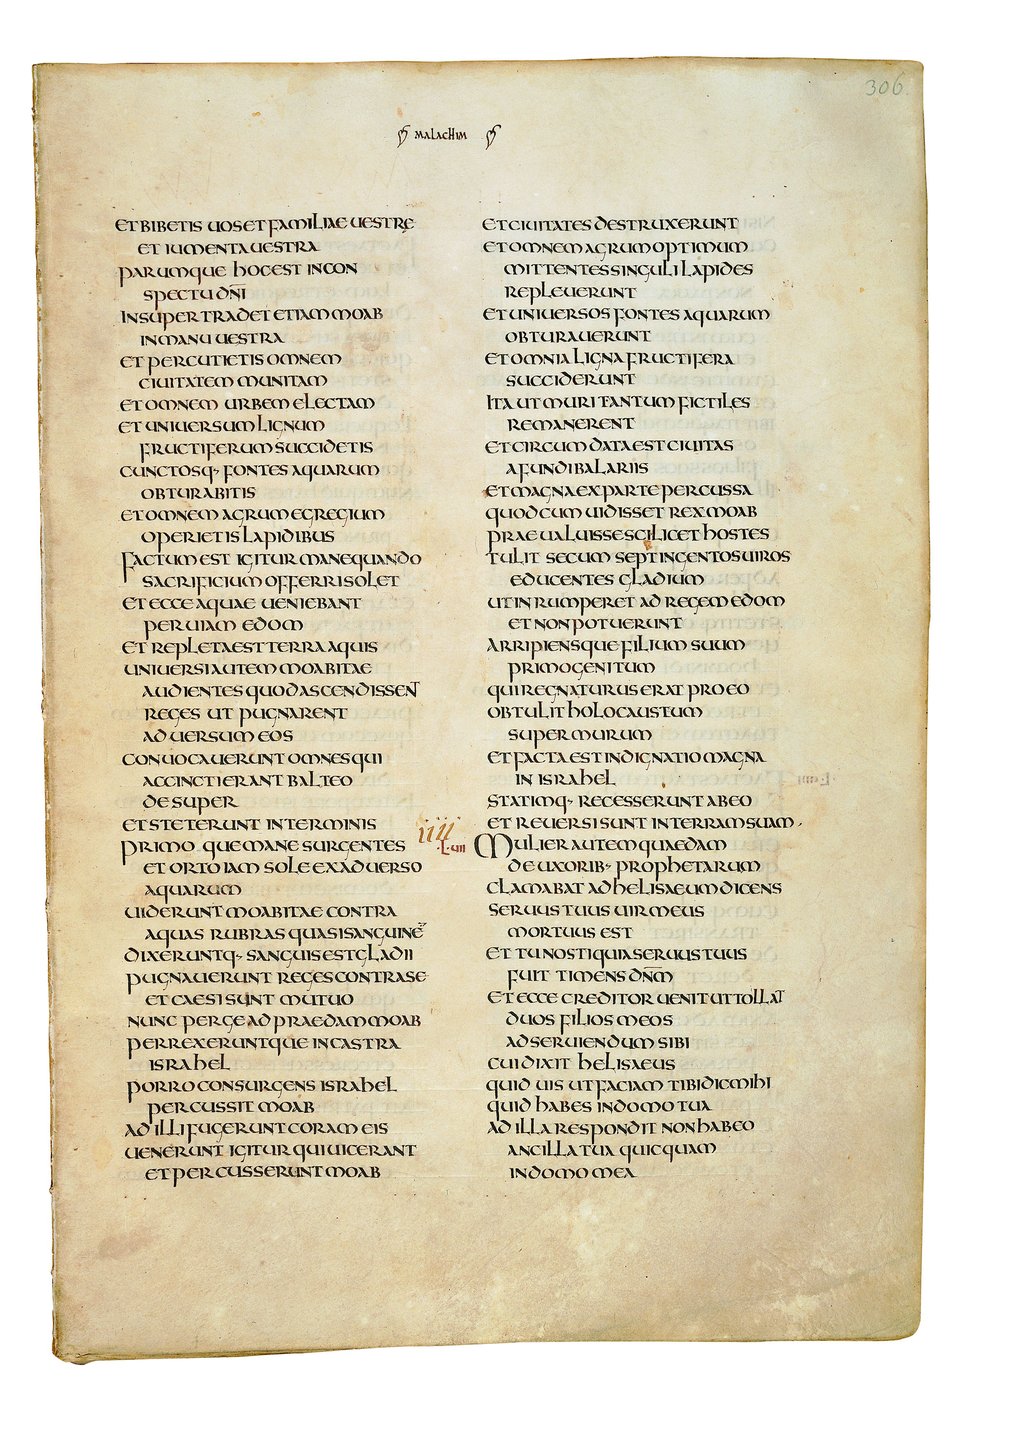 306.
MALACHIM
ET BIBETIS UOS ET FAMILIAE UESTRE
ET IUMENTA UESTRA
PARUMQUE HOC EST IN CON
SPECTU DN̄I
INSUPER TRADET ETIAM MOAB
IN MANU UESTRA
ET PERCUTIETIS OMNEM
CIUITATEM MUNITAM
ET OMNEM URBEM ELECTAM
ET UNIUERSUM LIGNUM
FRUCTIFERUM SUCCIDETIS
CUNCTOSQ· FONTES AQUARUM
OBTURABITIS
ET OMNEM AGRUM EGREGIUM
OPERIETIS LAPIDIBUS
FACTUM EST IGITUR MANE QUANDO
SACRIFICIUM OFFERRI SOLET
ET ECCE AQUAE UENIEBANT
PER UIAM EDOM
ET REPLETA EST TERRA AQUIS
UNIUERSI AUTEM MOABITAE
AUDIENTES QUOD ASCENDISSENT
REGES UT PUGNARENT
ADUERSUM EOS
CONUOCAUERUNT OMNES QUI
ACCINCTI ERANT BALTEO
DESUPER
ET STETERUNT IN TERMINIS
PRIMOQUE MANE SURGENTES
ET ORTO IAM SOLE EX ADUERSO
AQUARUM
UIDERUNT MOABITAE CONTRA
AQUAS RUBRAS QUASI SANGUINĒ
DIXERUNTQ· SANGUIS EST GLADII
PUGNAUERUNT REGES CONTRA SE
ET CAESI SUNT MUTUO
NUNC PERGE AD PRAEDAM MOAB
PERREXERUNTQUE IN CASTRA
ISRAHEL
PORRO CONSURGENS ISRAHEL
PERCUSSIT MOAB
AD ILLI FUGERUNT CORAM EIS
UENERUNT IGITUR QUI UICERANT
ET PERCUSSERUNT MOAB
ET CIUITATES DESTRUXERUNT
ET OMNEM AGRUM OPTIMUM
MITTENTES SINGULI LAPIDES
REPLEUERUNT
ET UNIUERSOS FONTES AQUARUM
OBTURAUERUNT
ET OMNIA LIGNA FRUCTIFERA
SUCCIDERUNT
ITA UT MURI TANTUM FICTILES
REMANERENT
ET CIRCUMDATA EST CIUITAS
A FUNDIBALARIIS
ET MAGNA EX PARTE PERCUSSA
QUOD CUM UIDISSET REX MOAB
PRAEUALUISSE SCILICET HOSTES
TULIT SECUM SEPTINGENTOS UIROS
EDUCENTES GLADIUM
UT INRUMPERET AD REGEM EDOM
ET NON POTUERUNT
ARRIPIENSQUE FILIUM SUUM
PRIMOGENITUM
QUI REGNATURUS ERAT PRO EO
OBTULIT HOLOCAUSTUM
SUPER MURUM
ET FACTA EST INDIGNATIO MAGNA
IN ISRAHEL
STATIMQ· RECESSERUNT AB EO
ET REUERSI SUNT IN TERRAM SUAM
IIII
·L·UII
MULIER AUTEM QUAEDAM
DE UXORIB· PROPHETARUM
CLAMABAT AD HELISAEUM DICENS
SERUUS TUUS UIR MEUS
MORTUUS EST
ET TU NOSTI QUIA SERUUS TUUS
FUIT TIMENS DN̄M
ET ECCE CREDITOR UENIT UT TOLLAT
DUOS FILIOS MEOS
AD SERUIENDUM SIBI
CUI DIXIT HELISAEUS
QUID UIS UT FACIAM TIBI DIC MIHI
QUID HABES IN DOMO TUA
AD ILLA RESPONDIT NON HABEO
ANCILLA TUA QUICQUAM
IN DOMO MEA